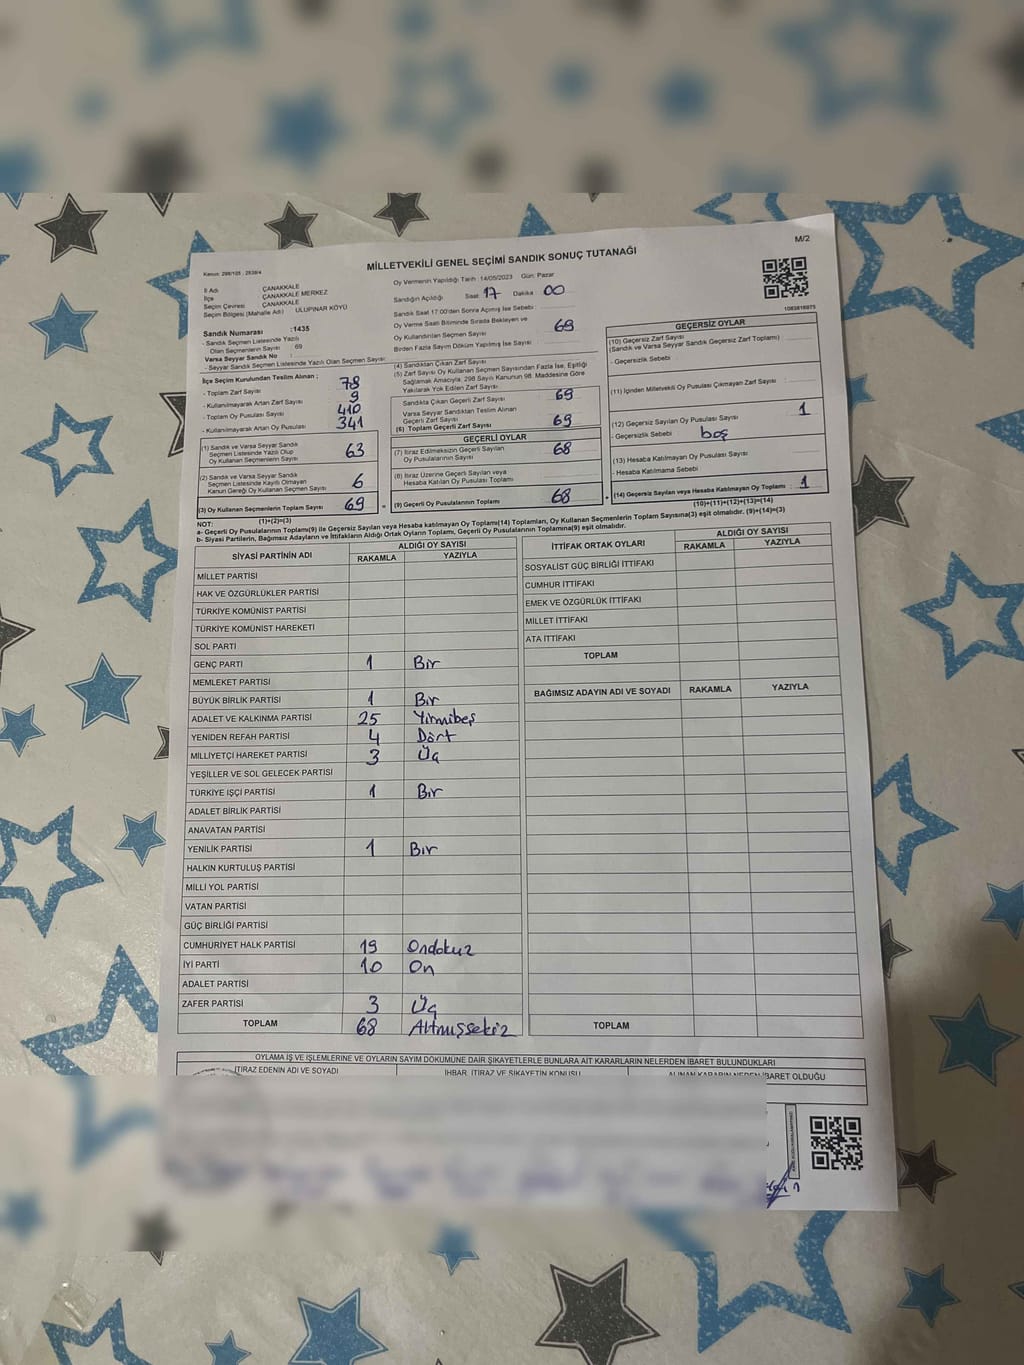 M/2
MİLLETVEKİLİ GENEL SEÇİMİ SANDIK SONUÇ TUTANAĞI
Kanun: 298/105 , 2839/4
İl Adı : ÇANAKKALE
İlçe : ÇANAKKALE MERKEZ
Seçim Çevresi : ÇANAKKALE
Seçim Bölgesi (Mahalle Adı) : ULUPINAR KÖYÜ
Sandık Numarası :1435
- Sandık Seçmen Listesinde Yazılı
Olan Seçmenlerin Sayısı : 69
Varsa Seyyar Sandık No :
- Seyyar Sandık Seçmen Listesinde Yazılı Olan Seçmen Sayısı:
Oy Vermenin Yapıldığı Tarih : 14/05/2023 Gün: Pazar
Sandığın Açıldığı Saat 17 Dakika 00
Sandık Saat 17:00'den Sonra Açılmış İse Sebebi :
Oy Verme Saati Bitiminde Sırada Bekleyen ve
Oy Kullandırılan Seçmen Sayısı : 69
Birden Fazla Sayım Döküm Yapılmış İse Sayısı :
İlçe Seçim Kurulundan Teslim Alınan ;
- Toplam Zarf Sayısı : 78
- Kullanılmayarak Artan Zarf Sayısı : 9
- Toplam Oy Pusulası Sayısı : 410
- Kullanılmayarak Artan Oy Pusulası : 341
(1) Sandık ve Varsa Seyyar Sandık
Seçmen Listesinde Yazılı Olup
Oy Kullanan Seçmenlerin Sayısı : 63
(2) Sandık ve Varsa Seyyar Sandık
Seçmen Listesinde Kayıtlı Olmayan
Kanun Gereği Oy Kullanan Seçmen Sayısı : 6
(3) Oy Kullanan Seçmenlerin Toplam Sayısı : 69
(1)+(2)=(3)
(4) Sandıktan Çıkan Zarf Sayısı :
(5) Zarf Sayısı Oy Kullanan Seçmen Sayısından Fazla İse, Eşitliği
Sağlamak Amacıyla, 298 Sayılı Kanunun 98. Maddesine Göre
Yakılarak Yok Edilen Zarf Sayısı :
Sandıkta Çıkan Geçerli Zarf Sayısı : 69
Varsa Seyyar Sandıktan Teslim Alınan
Geçerli Zarf Sayısı :
(6) Toplam Geçerli Zarf Sayısı : 69
GEÇERLİ OYLAR
(7) İtiraz Edilmeksizin Geçerli Sayılan
Oy Pusulalarının Sayısı : 68
(8) İtiraz Üzerine Geçerli Sayılan veya
Hesaba Katılan Oy Pusulası Toplamı :
(9) Geçerli Oy Pusulalarının Toplamı : 68
1083816975
GEÇERSİZ OYLAR
(10) Geçersiz Zarf Sayısı :
(Sandık ve Varsa Seyyar Sandık Geçersiz Zarf Toplamı)
- Geçersizlik Sebebi :
(11) İçinden Milletvekili Oy Pusulası Çıkmayan Zarf Sayısı :
(12) Geçersiz Sayılan Oy Pusulası Sayısı : 1
- Geçersizlik Sebebi : boş
(13) Hesaba Katılmayan Oy Pusulası Sayısı :
- Hesaba Katılmama Sebebi :
(14) Geçersiz Sayılan veya Hesaba Katılmayan Oy Toplamı : 1
(10)+(11)+(12)+(13)=(14)
NOT:
a- Geçerli Oy Pusulalarının Toplamı(9) ile Geçersiz Sayılan veya Hesaba katılmayan Oy Toplamı(14) Toplamları, Oy Kullanan Seçmenlerin Toplam Sayısına(3) eşit olmalıdır. (9)+(14)=(3)
b- Siyasi Partilerin, Bağımsız Adayların ve İttifakların Aldığı Ortak Oyların Toplamı, Geçerli Oy Pusulalarının Toplamına(9) eşit olmalıdır.
SİYASİ PARTİNİN ADI ALDIĞI OY SAYISI
RAKAMLA YAZIYLA
MİLLET PARTİSİ
HAK VE ÖZGÜRLÜKLER PARTİSİ
TÜRKİYE KOMÜNİST PARTİSİ
TÜRKİYE KOMÜNİST HAREKETİ
SOL PARTİ
GENÇ PARTİ 1 Bir
MEMLEKET PARTİSİ
BÜYÜK BİRLİK PARTİSİ 1 Bir
ADALET VE KALKINMA PARTİSİ 25 Yirmibeş
YENİDEN REFAH PARTİSİ 4 Dört
MİLLİYETÇİ HAREKET PARTİSİ 3 Üç
YEŞİLLER VE SOL GELECEK PARTİSİ
TÜRKİYE İŞÇİ PARTİSİ 1 Bir
ADALET BİRLİK PARTİSİ
ANAVATAN PARTİSİ
YENİLİK PARTİSİ 1 Bir
HALKIN KURTULUŞ PARTİSİ
MİLLİ YOL PARTİSİ
VATAN PARTİSİ
GÜÇ BİRLİĞİ PARTİSİ
CUMHURİYET HALK PARTİSİ 19 Ondokuz
İYİ PARTİ 10 On
ADALET PARTİSİ
ZAFER PARTİSİ 3 Üç
TOPLAM 68 Altmışsekiz
İTTİFAK ORTAK OYLARI ALDIĞI OY SAYISI
RAKAMLA YAZIYLA
SOSYALİST GÜÇ BİRLİĞİ İTTİFAKI
CUMHUR İTTİFAKI
EMEK VE ÖZGÜRLÜK İTTİFAKI
MİLLET İTTİFAKI
ATA İTTİFAKI
TOPLAM
BAĞIMSIZ ADAYIN ADI VE SOYADI RAKAMLA YAZIYLA
TOPLAM
OYLAMA İŞ VE İŞLEMLERİNE VE OYLARIN SAYIM DÖKÜMÜNE DAİR ŞİKAYETLERLE BUNLARA AİT KARARLARIN NELERDEN İBARET BULUNDUKLARI
İTİRAZ EDENİN ADI VE SOYADI İHBAR, İTİRAZ VE ŞİKAYETİN KONUSU ALINAN KARARIN NEDEN İBARET OLDUĞU